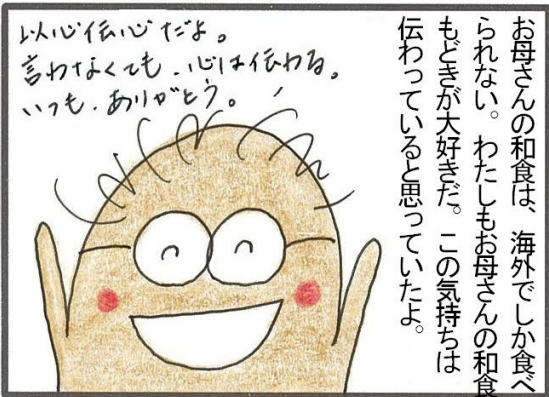 お母さんの和食は、海外でしか食べ
られない。わたしもお母さんの和食
もどきが大好きだ。この気持ちは
伝わっていると思っていたよ。
以心伝心だよ。
言わなくても、心は伝わる。
いつも、ありがとう。